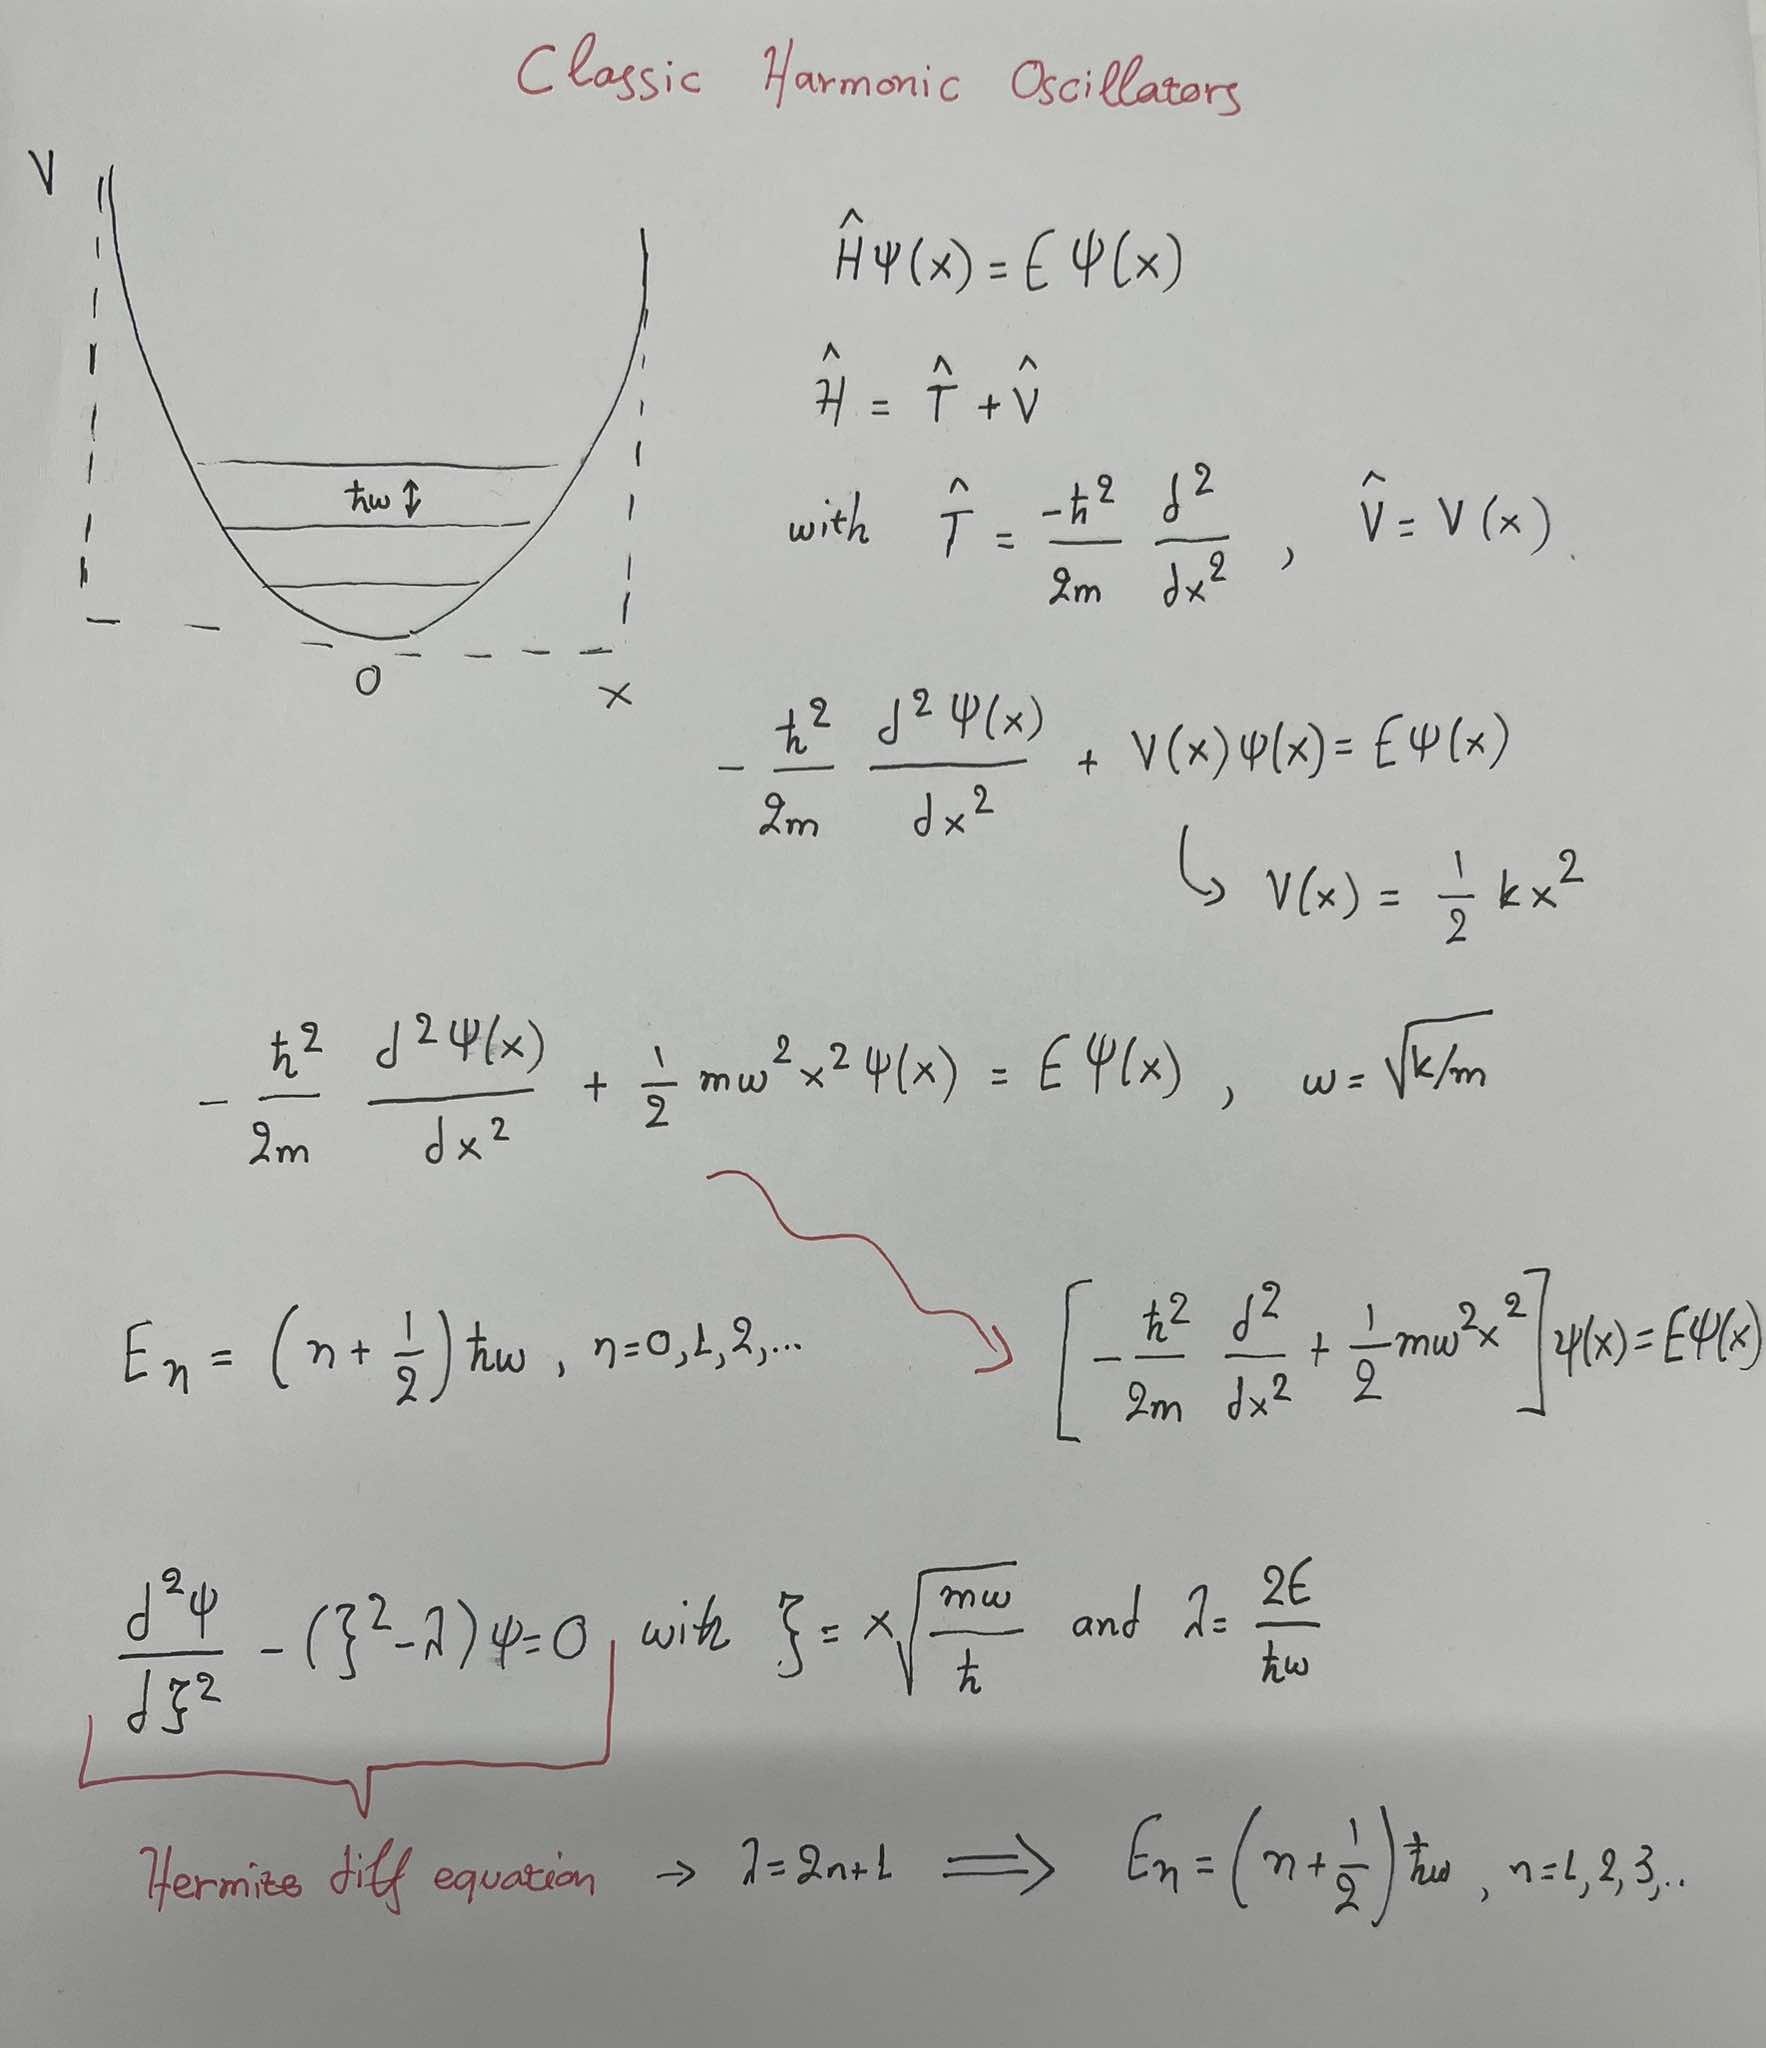 Classic Harmonic Oscillators
V
ħω
O
x
Ĥψ(x) = Eψ(x)
Ĥ = T̂ + V̂
with T̂ = -ħ²/2m d²/dx² , V̂ = V(x).
- ħ²/2m d²ψ(x)/dx² + V(x)ψ(x) = Eψ(x)
↳ V(x) = 1/2 kx²
- ħ²/2m d²ψ(x)/dx² + 1/2 mω²x²ψ(x) = Eψ(x) , ω = √k/m
Eₙ = (n + 1/2) ħω , n=0,1,2,...
[- ħ²/2m d²/dx² + 1/2 mω²x²] ψ(x) = Eψ(x)
d²ψ/dξ² - (ξ² - λ) ψ = 0 with ξ = x√mω/ħ and λ = 2E/ħω
Hermite diff equation → λ = 2n+1 ⟹ Eₙ = (n + 1/2) ħω , n=1,2,3,..